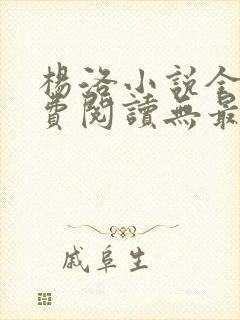 楊洛小說全
費閱讀無最
戚阜生